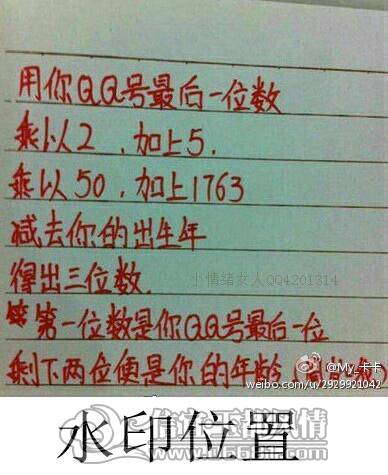 用你QQ号最后一位数
乘以2,加上5.
乘以50,加上1763
减去你的出生年
得出三位数.
小情绪女人QQ4201314
第一位数是你QQ号最后一位
剩下两位便是你的年龄
@My_卡卡
weibo.com/u/2929921042
水印位置